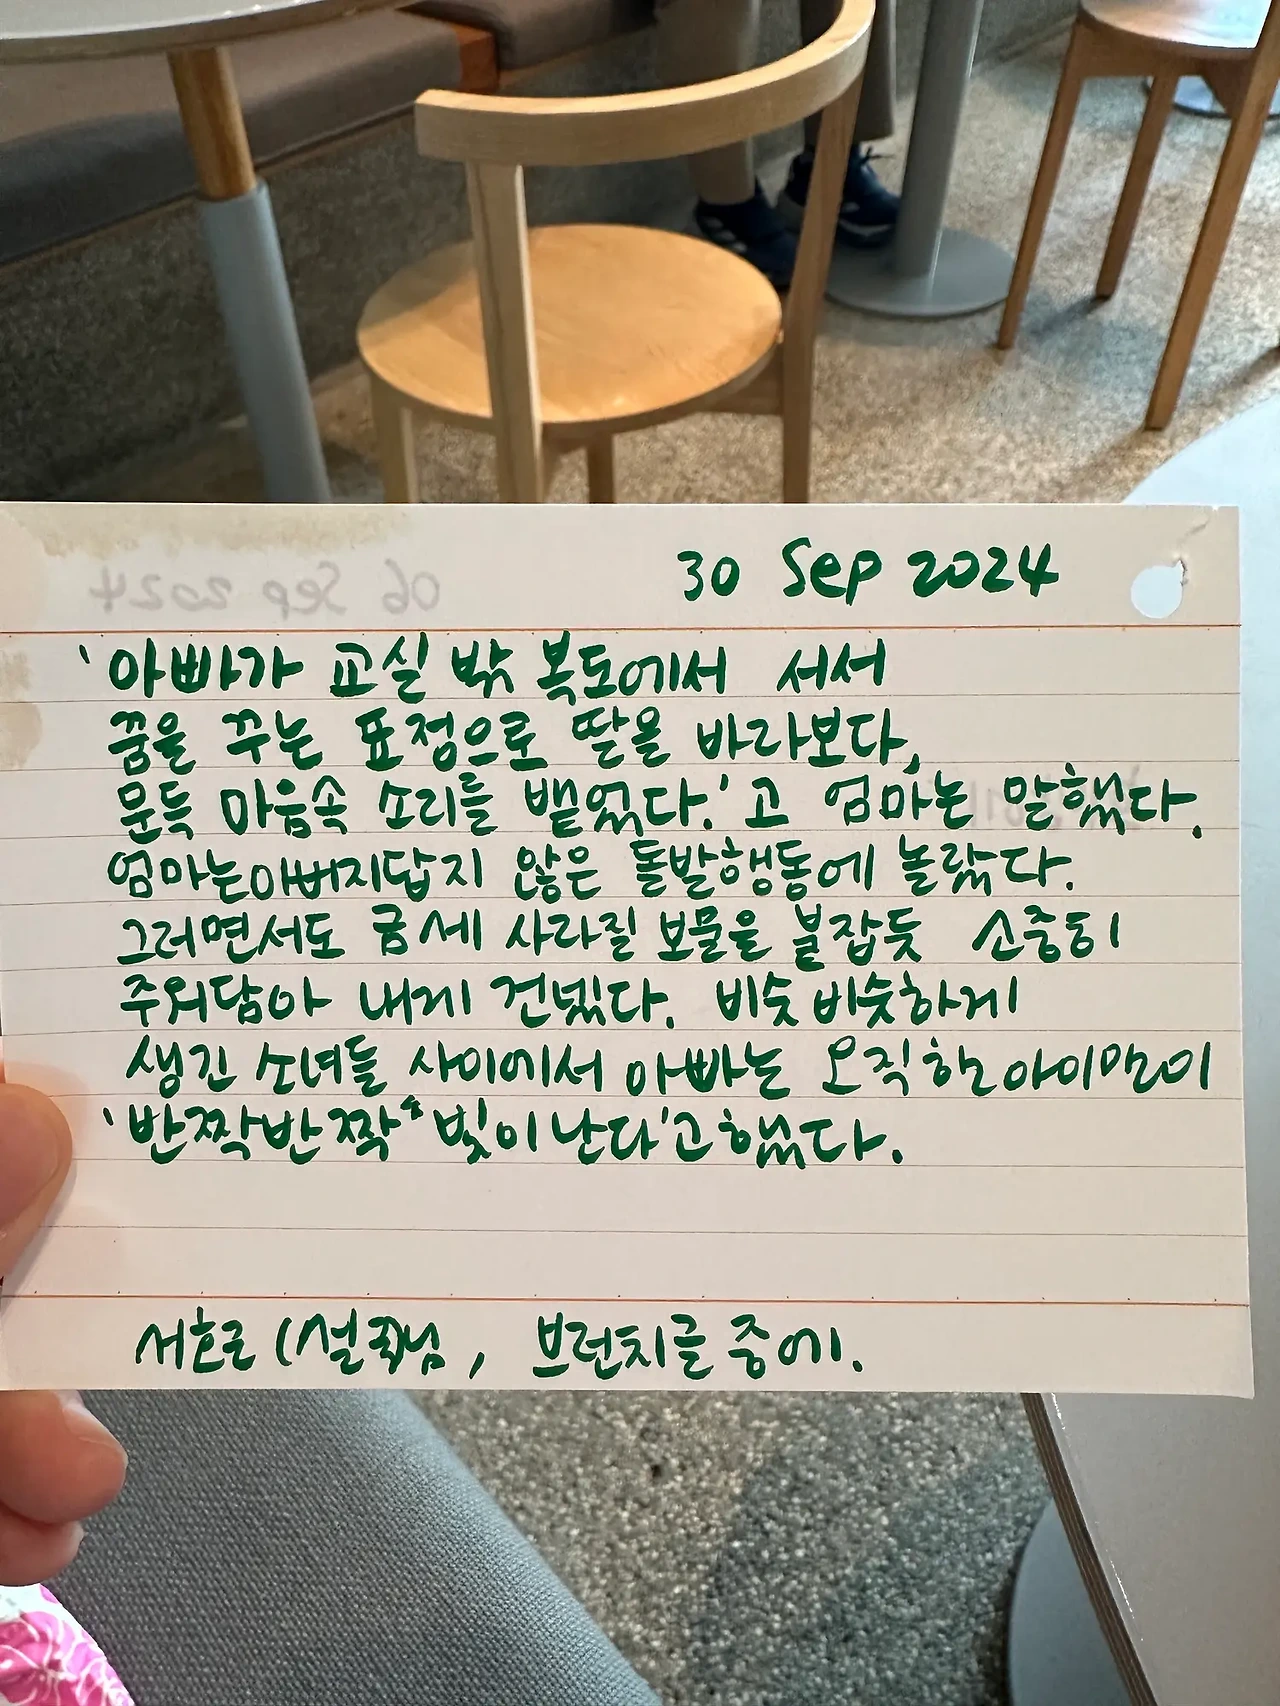 06 Sep 2024
30 Sep 2024
'아빠가 교실 밖 복도에서 서서
꿈을 꾸는 표정으로 딸을 바라보다,
문득 마음속 소리를 뱉었다.'고 엄마는 말했다.
엄마는 아버지답지 않은 돌발행동에 놀랐다.
그러면서도 금세 사라질 보물을 붙잡듯 소중히
주워담아 내게 건넸다. 비슷비슷하게
생긴 소녀들 사이에서 아빠는 오직 한 아이만이
'반짝반짝 빛이 난다'고 했다.
서효로 (설님, 브런치글 중에.